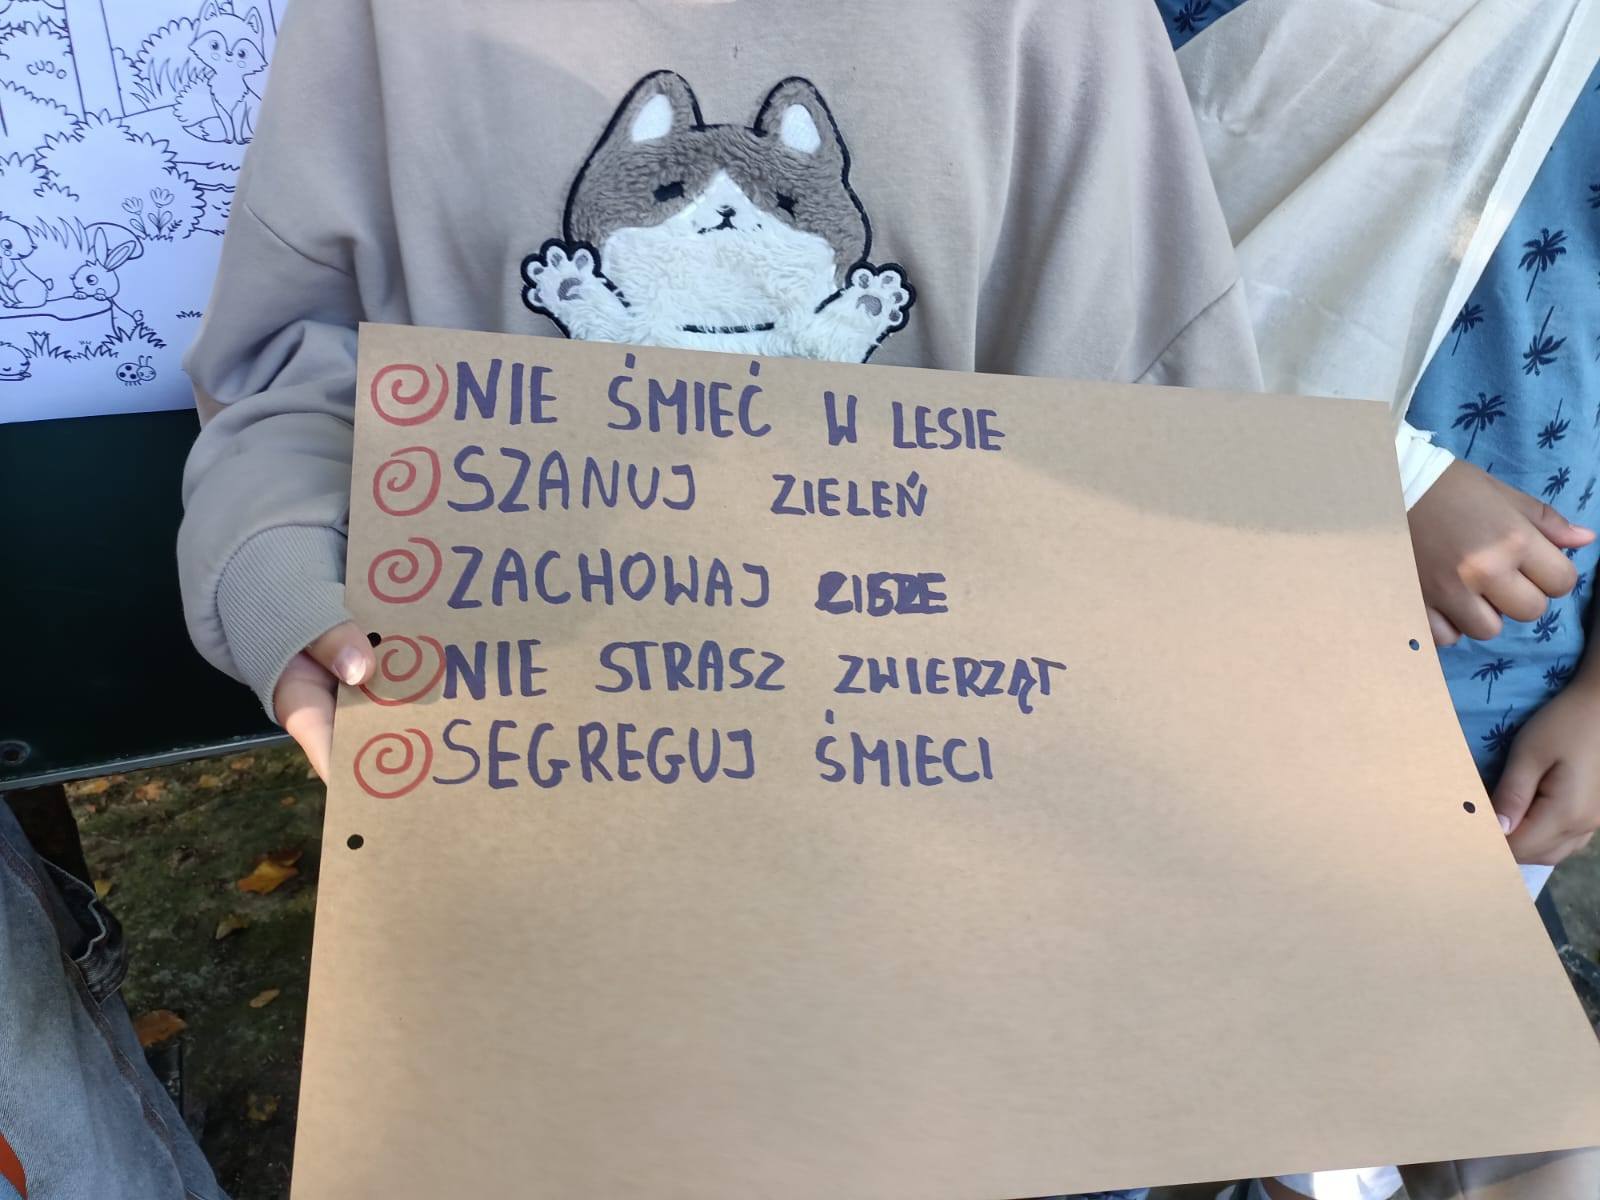 NIE ŚMIEĆ W LESIE
SZANUJ ZIELEŃ
ZACHOWAJ
NIE STRASZ ZWIERZĄT
SEGREGUJ ŚMIECI